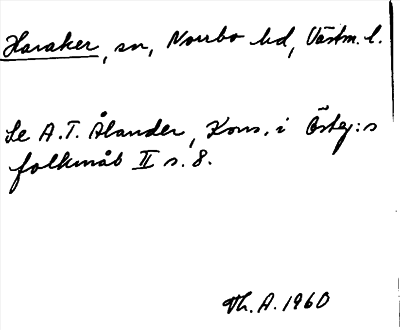 Haraker, sn, Norrbo hd, Västm. l.
Se A.T. Ålander, Kons. i Österg:s
folkmål II s. 8.
Th. A. 1960